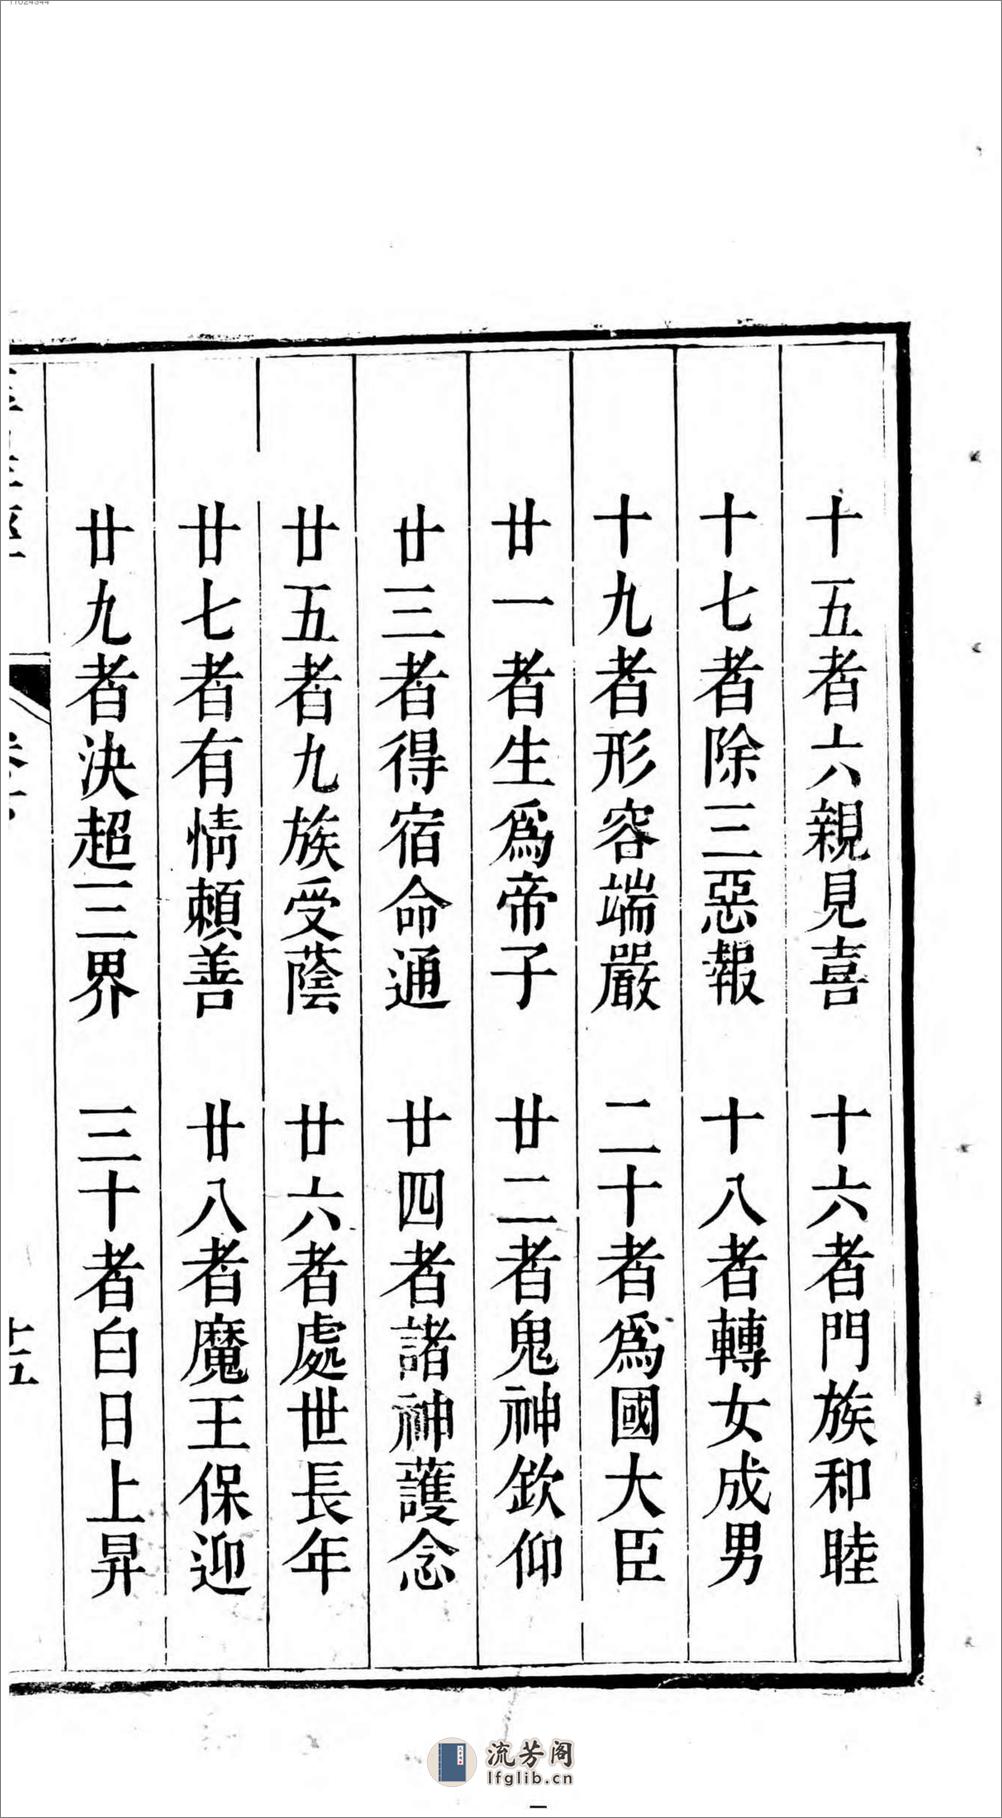 十五者六親見喜　十六者門族和睦
十七者除三惡報　十八者轉女成男
十九者形容端嚴　二十者爲國大臣
廿一者生爲帝子　廿二者鬼神欽仰
廿三者得宿命通　廿四者諸神護念
廿五者九族受蔭　廿六者處世長年
廿七者有情頼善　廿八者魔王保迎
廿九者決超三界　三十者白日上昇
十五
流芳阁
lfglib.cn